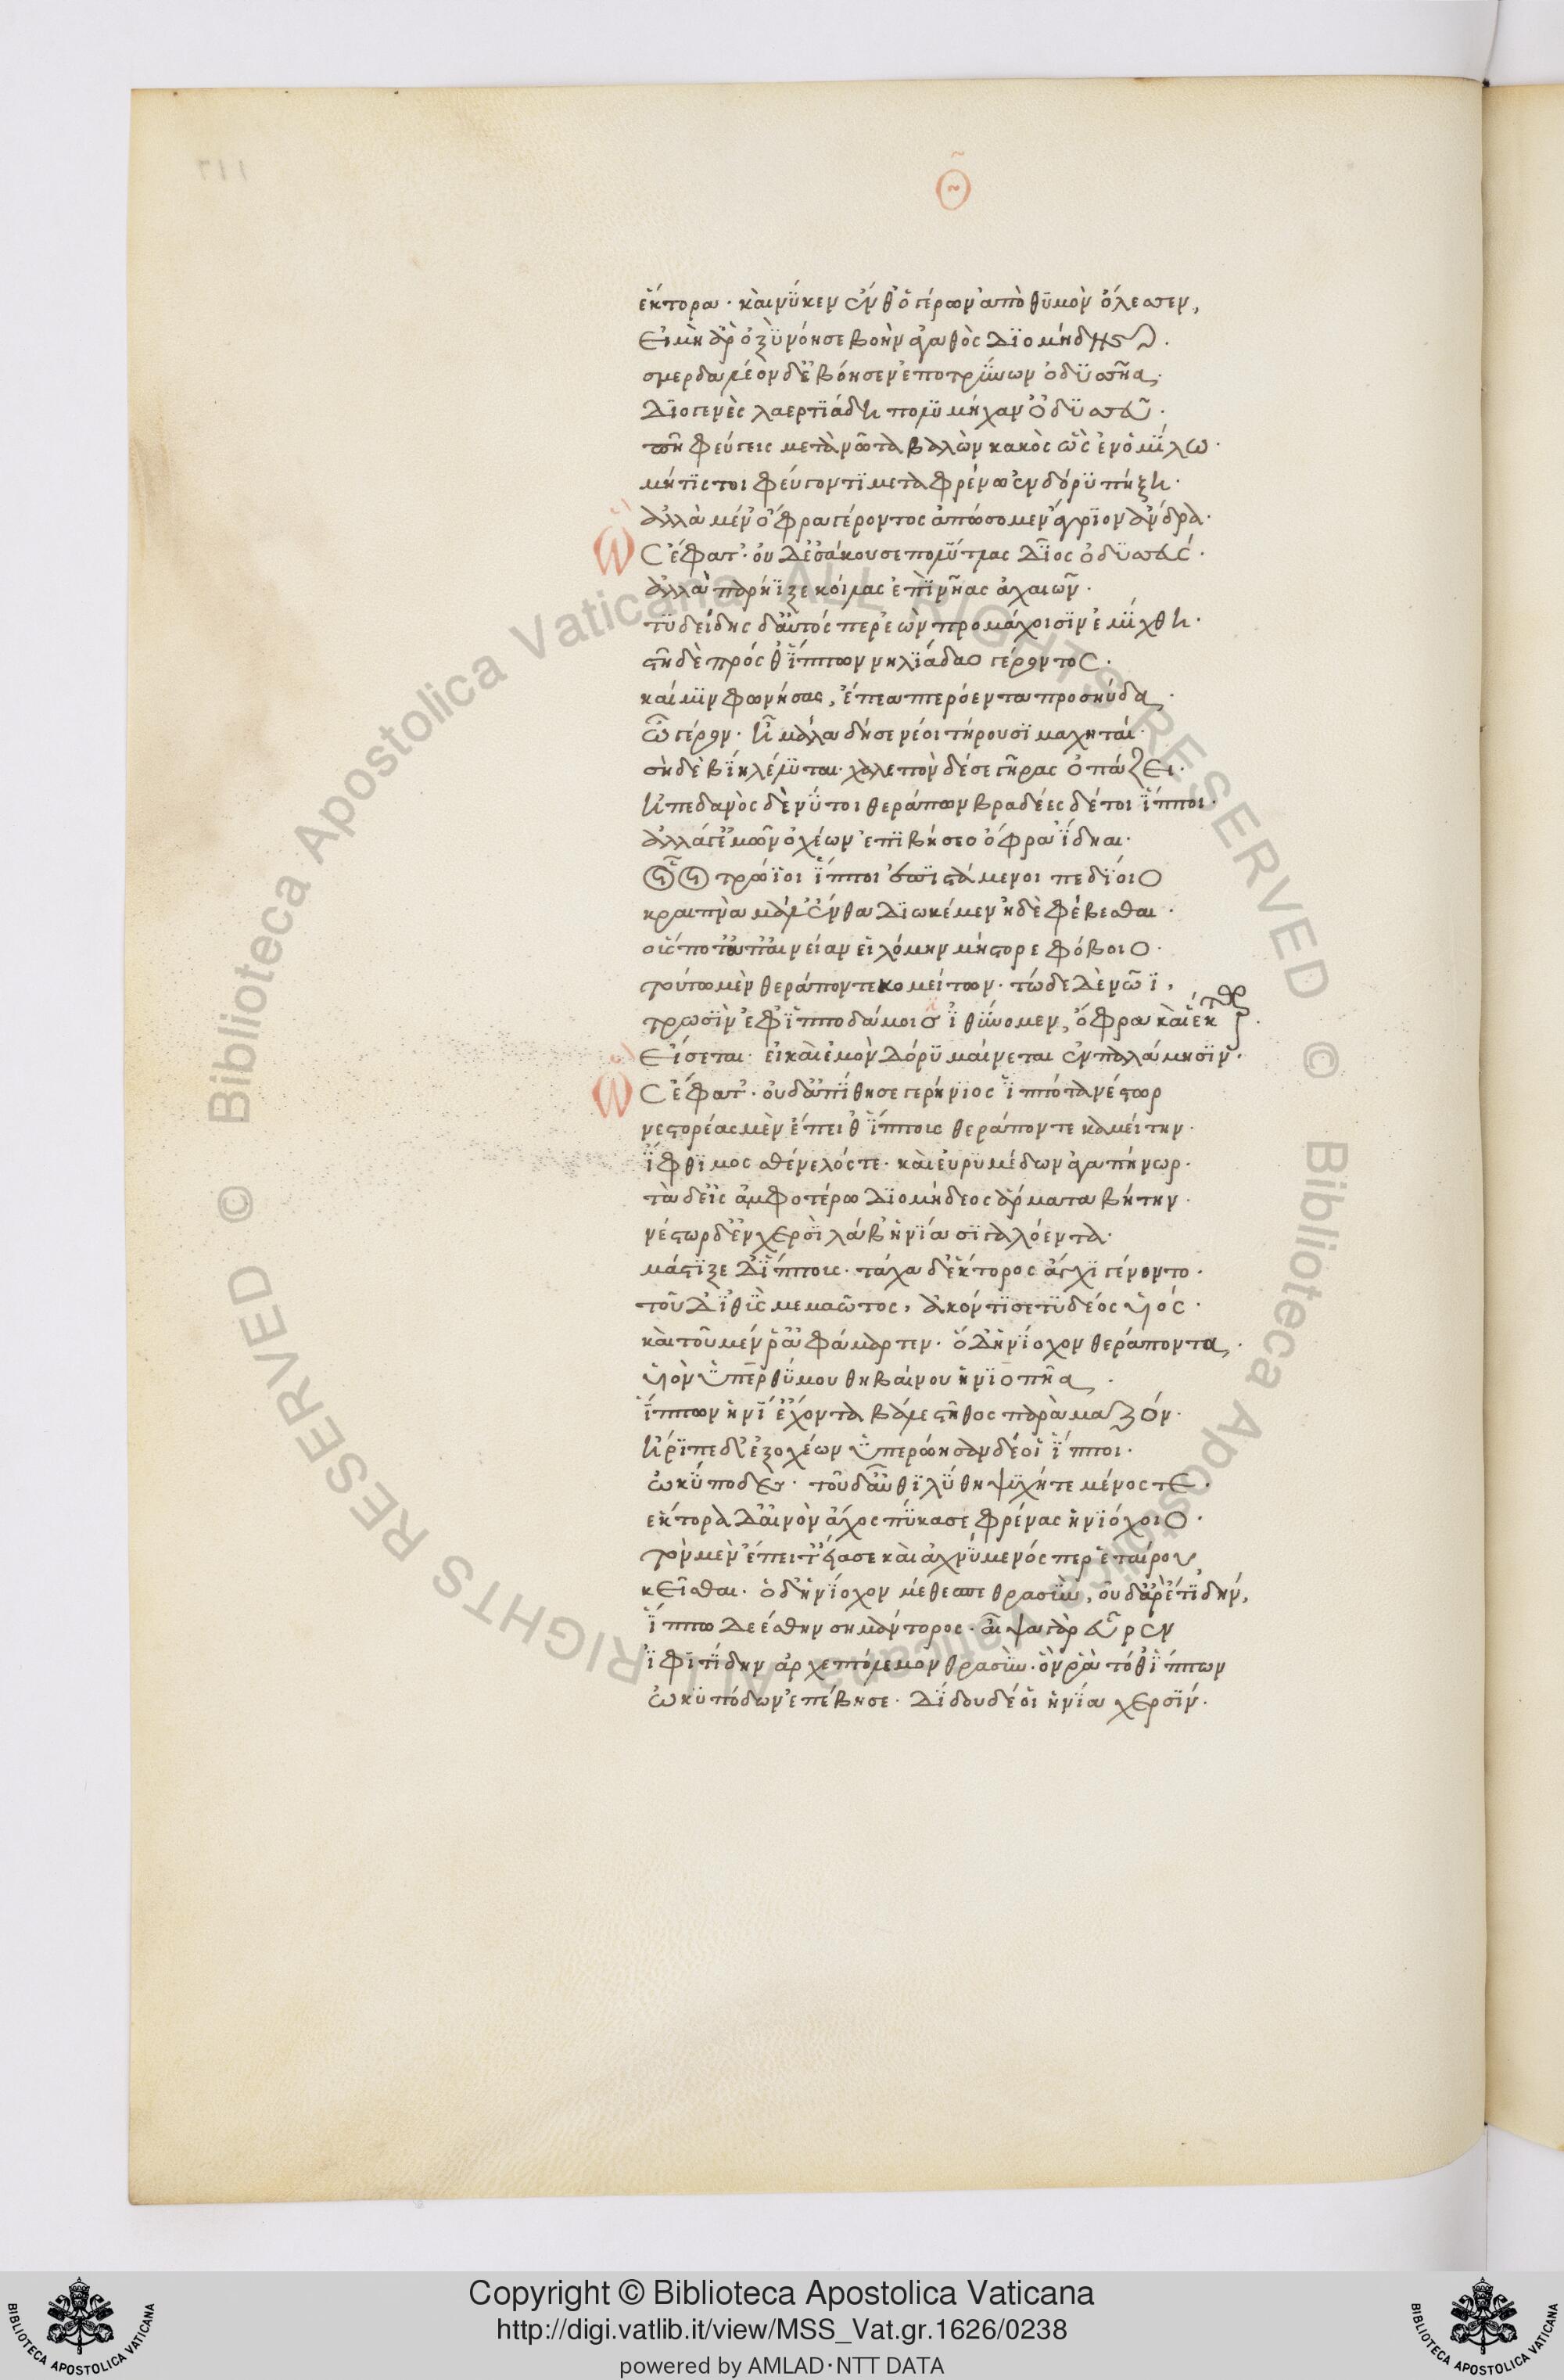 Θ
ἕκτορα· καί νύ κεν ἔνθ' ὁ γέρων ἀπὸ θυμὸν ὄλεσσεν,
Εἰ μὴ ἄρ' ὀξὺ νόησε βοὴν ἀγαθὸς Διομήδης.
σμερδαλέον δ' ἐβόησεν ἐποτρύνων ὀδυσσῆα·
Διογενὲς λαερτιάδη πολυμήχαν' ὀδυσσεῦ·
πῆ φεύγεις μετὰ νῶτα βαλὼν κακὸς ὣς ἐν ὁμίλω·
μήτις τοι φεύγοντι μεταφρένω ἐν δόρυ πήξη·
ἀλλὰ μέν' ὄφρα γέροντος ἀπώσομεν ἄγριον ἄνδρα·
Ὣς ἔφατ'· οὐδ' ἐσάκουσε πολύτλας δῖος ὀδυσσεύς·
ἀλλὰ παρήϊξε κοίλας ἐπὶ νῆας ἀχαιῶν·
τυδείδης δ' αὐτός περ ἐὼν προμάχοισιν ἐμίχθη·
στῆ δὲ πρόσθ' ἵππων νηλιάδαο γέροντος·
καί μιν φωνήσας, ἔπεα πτερόεντα προσηύδα·
ὦ γέρον· ἦ μάλα δή σε νέοι τήρουσι μαχηταί·
σὴ δὲ βίη λέλυται· χαλεπὸν δέ σε γῆρας ὀπάζει·
ἠπεδανὸς δέ νύ τοι θεράπων βραδέες δέ τοι ἵπποι·
ἀλλάγ' ἐμῶν ὀχέων ἐπιβήσεο ὄφρα ἴδηαι·
οἷοι τρώϊοι ἵπποι ἐπιστάμενοι πεδίοιο
κραιπνὰ μάλ' ἔνθα διωκέμεν ἠδὲ φέβεσθαι·
οὕς ποτ' ἀπ' αἰνείαν εἱλόμην μήστωρε φόβοιο·
τούτω μὲν θεράποντε κομείτων· τώδε δὲ νῶϊ,
τρωσὶν ἐφ' ἱπποδάμοισ ἰθύνομεν, ὄφρα καὶ ἕκτωρ·
Εἴσεται· εἰ καὶ ἐμὸν δόρυ μαίνεται ἐν παλάμησιν·
Ὣς ἔφατ'· οὐδ' ἀπίθησε γερήνιος ἱππότα νέστωρ
νεστορέας μὲν ἔπειθ' ἵππους θεράποντε κομείτην·
ἴφθιμος σθένελός τε· καὶ εὐρυμέδων ἀγαπήνωρ·
τὼ δ' εἰς ἀμφοτέρω Διομήδεος ἅρματα βήτην·
νέστωρ δ' ἐν χερσὶ λάβ' ἡνία σιγαλόεντα·
μάστιξε δ' ἵππους· τάχα δ' ἕκτορος ἄγχι γένοντο·
τοῦ δ' ἰθὺς μεμαῶτος, ἀκόντισε τυδέος υἱός·
καὶ τοῦ μέν ῥ' ἀφάμαρτεν· ὁ δ' ἡνίοχον θεράποντα,
υἱὸν ὑπερθύμου θηβαίου ἠνιοπῆα·
ἵππων ἡνί' ἔχοντα βάλε στῆθος παρὰ μαζόν·
ἤριπε δ' ἐξ ὀχέων ὑπερώησαν δέ οἱ ἵπποι·
ὠκύποδες· τοῦ δ' αὖθι λύθη ψυχή τε μένος τε·
ἕκτορα δ' αἰνὸν ἄχος πύκασε φρένας ἡνιόχοιο·
τὸν μὲν ἔπειτ' εἴασε καὶ ἀχνύμενός περ ἑταίρου
κεῖσθαι· ὁ δ' ἡνίοχον μέθεπε θρασύν, οὐδ' ἄρ' ἔτι δήν,
ἵππω δευέσθην σημάντορος· αἶψα γὰρ εὗρεν
ἰφιτίδην ἀρχεπτόλεμον θρασύν· ὅν ῥα τόθ' ἵππων
ὠκυπόδων ἐπέβησε· δίδου δέ οἱ ἡνία χερσίν·
© Biblioteca Apostolica Vaticana ALL RIGHTS RESERVED
© Biblioteca Apostolica Vaticana ALL RIGHTS RESERVED
Copyright © Biblioteca Apostolica Vaticana
http://digi.vatlib.it/view/MSS_Vat.gr.1626/0238
powered by AMLAD·NTT DATA
BIBLIOTECA APOSTOLICA VATICANA
BIBLIOTECA APOSTOLICA VATICANA